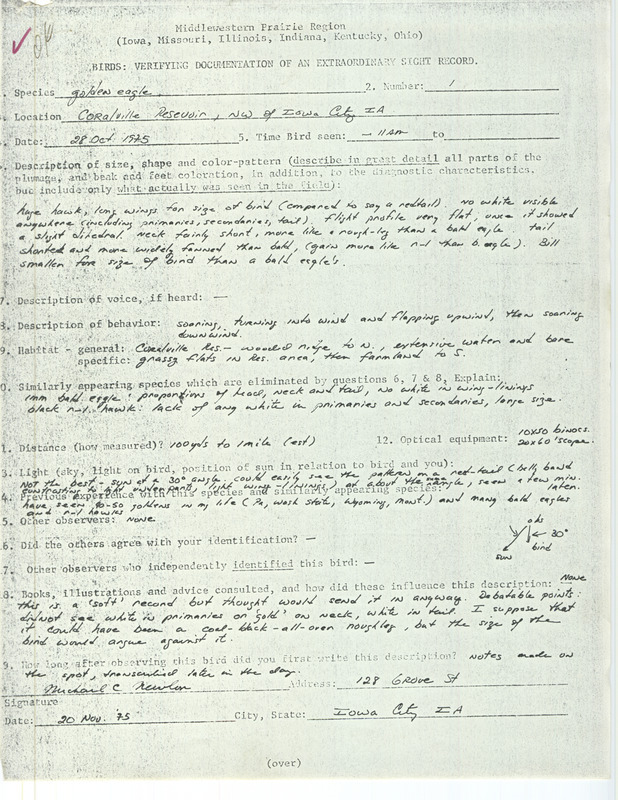 OK
Middlewestern Prairie Region
(Iowa, Missouri, Illinois, Indiana, Kentucky, Ohio)
BIRDS: VERIFYING DOCUMENTATION OF AN EXTRAORDINARY SIGHT RECORD.
. Species golden eagle 2. Number: 1
Location Coralville Resevoir, NW of Iowa City IA
Date: 28 Oct. 1975 5. Time Bird seen: ~11 AM to
Description of size, shape and color-pattern (describe in great detail all parts of the
plumage, and beak and feet coloration, in addition, to the diagnostic characteristics,
but include only what actually was seen in the field):
huge hawk, long wings for size of bird (compared to say a redtail). no white visible
anywhere (including primaries, secondaries, tail). flight profile very flat, once it showed
a slight dihedral. neck fairly short, more like a rough-leg than a bald eagle tail
shorter and more widely fanned than bald, (again more like r-l than b. eagle). Bill
smaller for size of bird than a bald eagle's.
7. Description of voice, if heard: —
8. Description of behavior: soaring, turning into wind and flapping upwind, then soaring
downwind.
9. Habitat - general: Coralville Res. - wooded ridge to N., extensive water and bare
specific: grassy flats in Res. area, then farmland to S.
0. Similarly appearing species which are eliminated by questions 6, 7 & 8, Explain:
imm bald eagle: proportions of head, neck and tail, no white in wing-linings
black r-l hawk: lack of any white in primaries and secondaries, large size.
1. Distance (how measured)? 100 yds to 1 mile (est) 12. Optical equipment: 10x50 binocs.
20x60 'scope.
3. Light (sky, light on bird, position of sun in relation to bird and you):
Not the best - sun at a 30° angle, could easily see the pattern on a red-tail (belly band
contrasting to light underparts, light wing-linings) at about the same angle, seen a few min. later.
4. Previous experience with this species and similarly appearing species:
have seen 40-50 goldens in my life (Pa, Wash State, Wyoming, Mont.) and many bald eagles
and r-l hawks
5. Other observers: none
6. Did the others agree with your identification? —
obs
30°
bird
sun
7. Other observers who independently identified this bird: —
8. Books, illustrations and advice consulted, and how did these influence this description: None
this is a 'soft' record but thought would send it in anyway. Debatable points:
did not see white in primaries or 'gold' on neck, white in tail. I suppose that
it could have been a coal-black-all-over roughleg, but the size of the
bird would argue against it.
9. How long after observing this bird did you first write this description? notes made on
the spot, transcribed later in the day
Michael C Newlon Address: 128 Grove St
Signature
Date: 20 Nov. '75 City, State: Iowa City IA
(over)